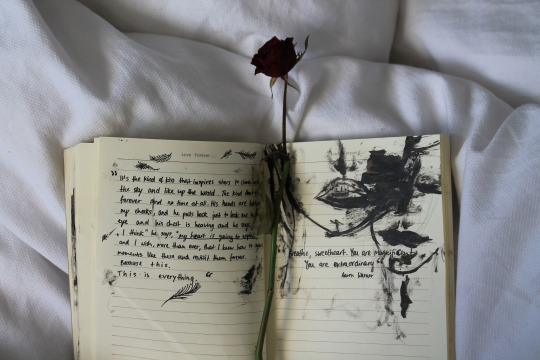 Love Forever
" It's the kind of kiss that inspires stars to climb into
the sky and light up the world. The kind that
forever and no time at all. His hands are
my cheeks, and he pulls back just to look me in the
eye and his chest is heaving and he says,
" I think" he says, "my heart is going to
and I wish, more than ever, that I knew how to
moments like these and revisit them forever.
Because this.
This is everything. "
Breathe, sweetheart. You are magnificent.
You are extraordinary "
Aaron Warner